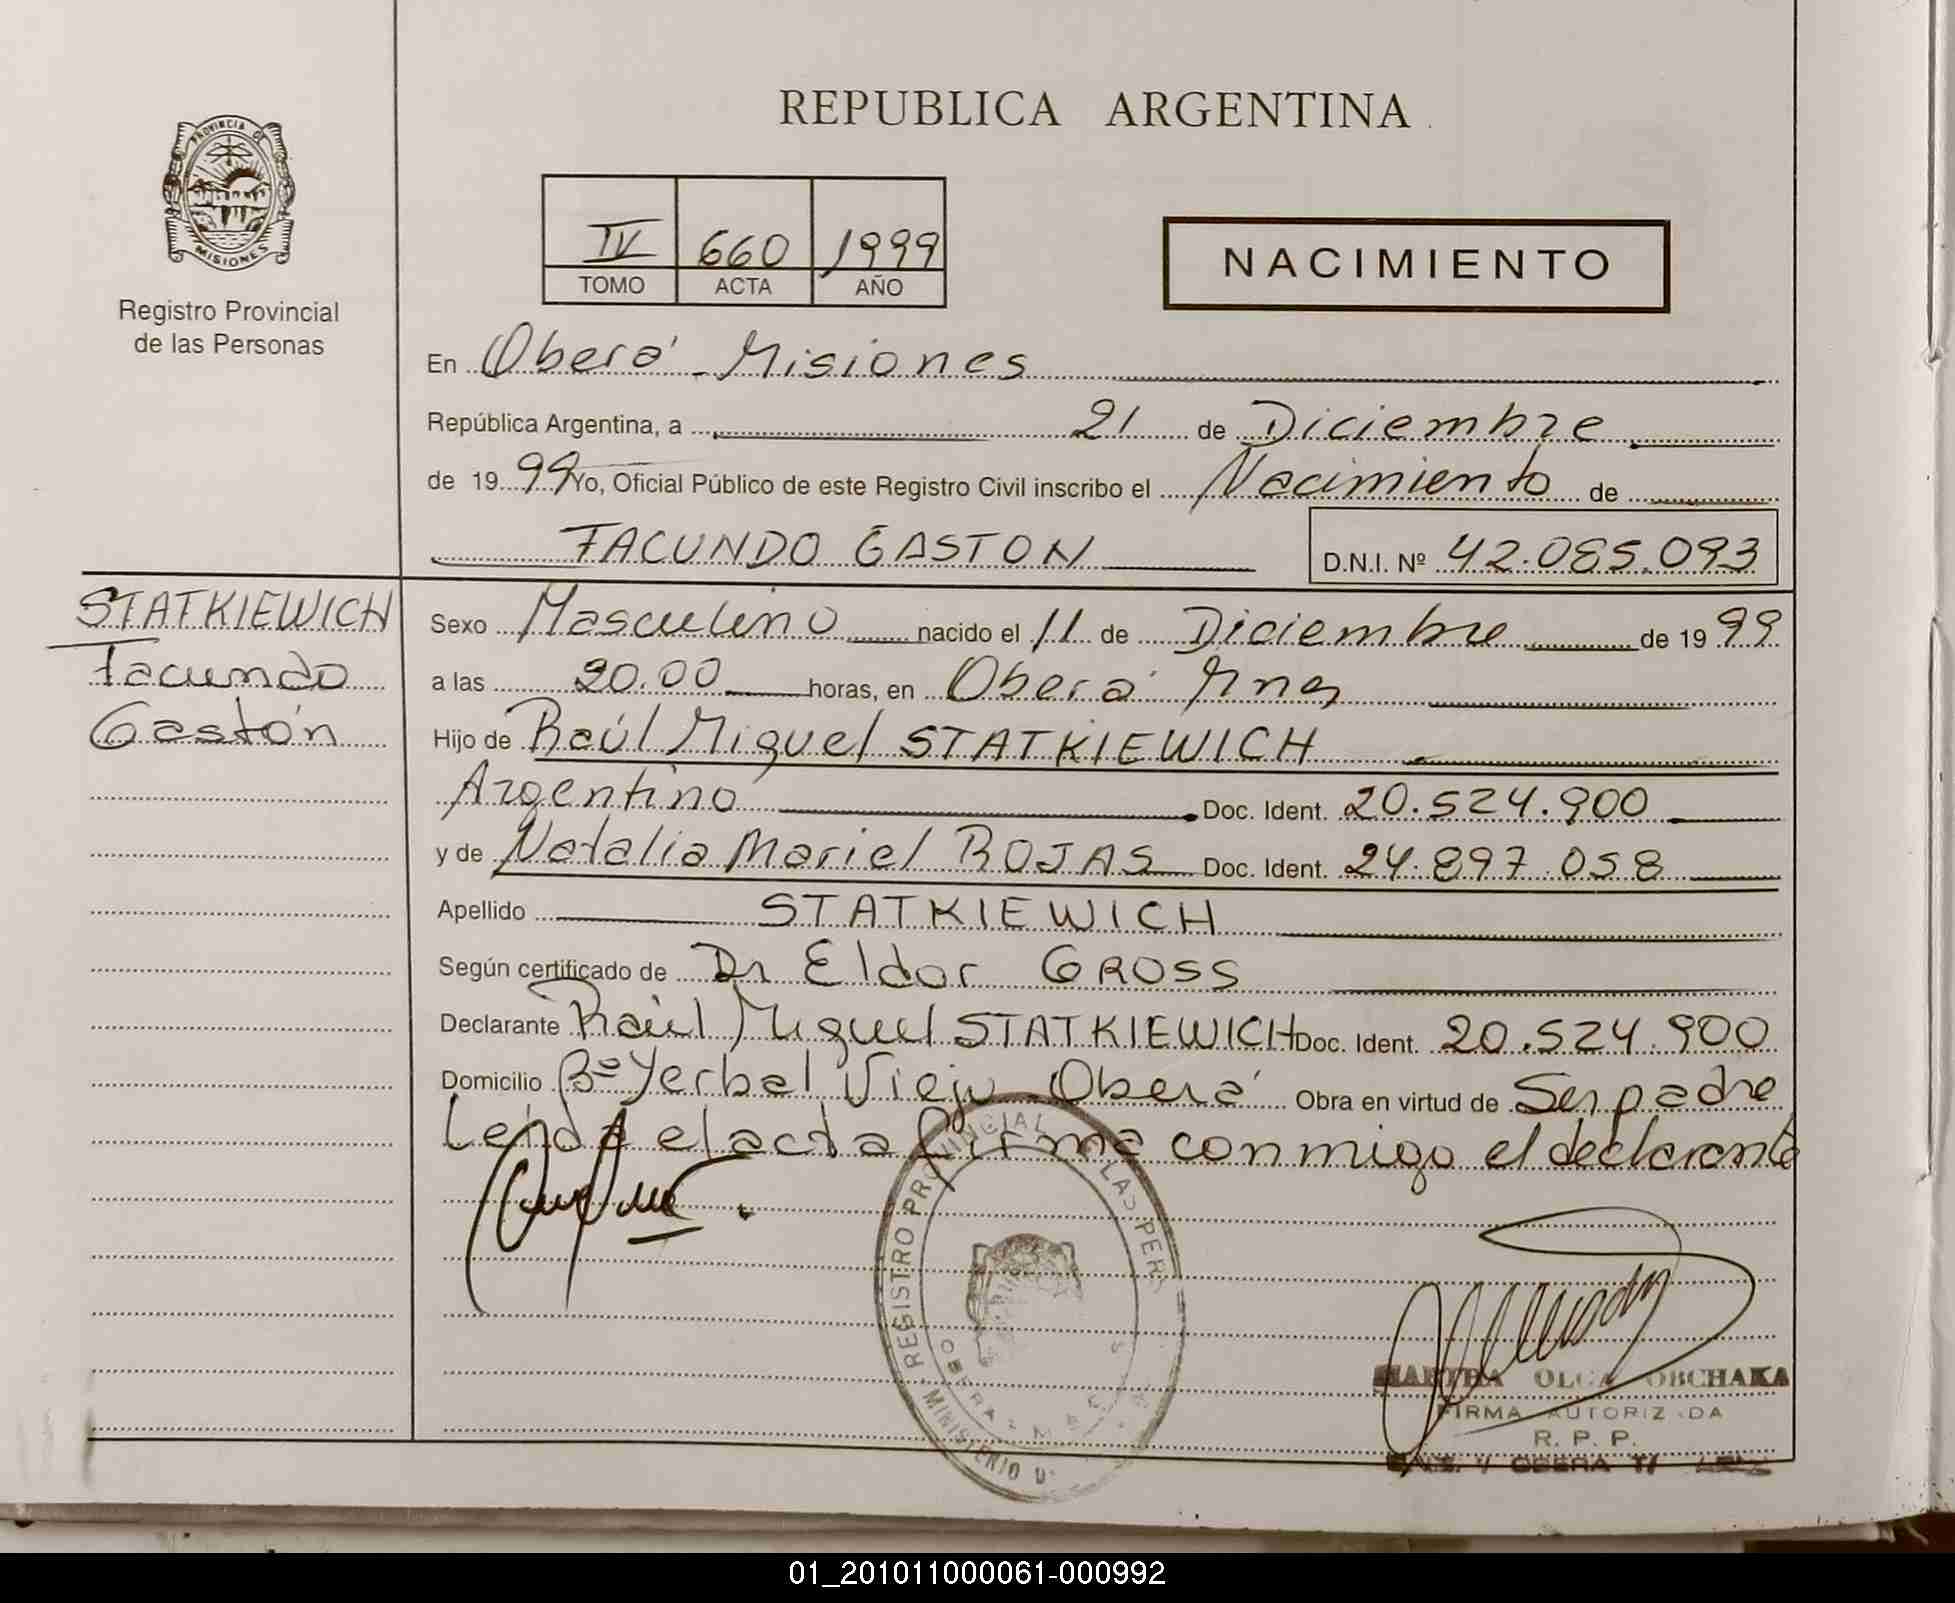 REPUBLICA ARGENTINA
PROVINCIA DE
MISIONES
Registro Provincial
de las Personas
IV 660 1999
TOMO ACTA AÑO
NACIMIENTO
En Oberá - Misiones
República Argentina, a 21 de Diciembre
de 1999 Yo, Oficial Público de este Registro Civil inscribo el Nacimiento de
FACUNDO GASTON D.N.I. Nº 42.085.093
STATKIEWICH
Facundo
Gastón
Sexo Masculino nacido el 11 de Diciembre de 1999
a las 20.00 horas, en Oberá Mnes
Hijo de Raúl Miguel STATKIEWICH
Argentino Doc. Ident. 20.524.900
y de Natalia Mariel ROJAS Doc. Ident. 24.897.058
Apellido STATKIEWICH
Según certificado de Dr Eldor GROSS
Declarante Raúl Miguel STATKIEWICH Doc. Ident. 20.524.900
Domicilio Bº Yerbal Viejo Oberá Obra en virtud de Ser padre
Leída el acta firma conmigo el declarante
REGISTRO PROVINCIAL LAS PERS
OBERA
MINISTERIO D
MARTHA OLGA OBCHAKA
FIRMA AUTORIZADA
R. P. P.
OBERA
01_201011000061-000992